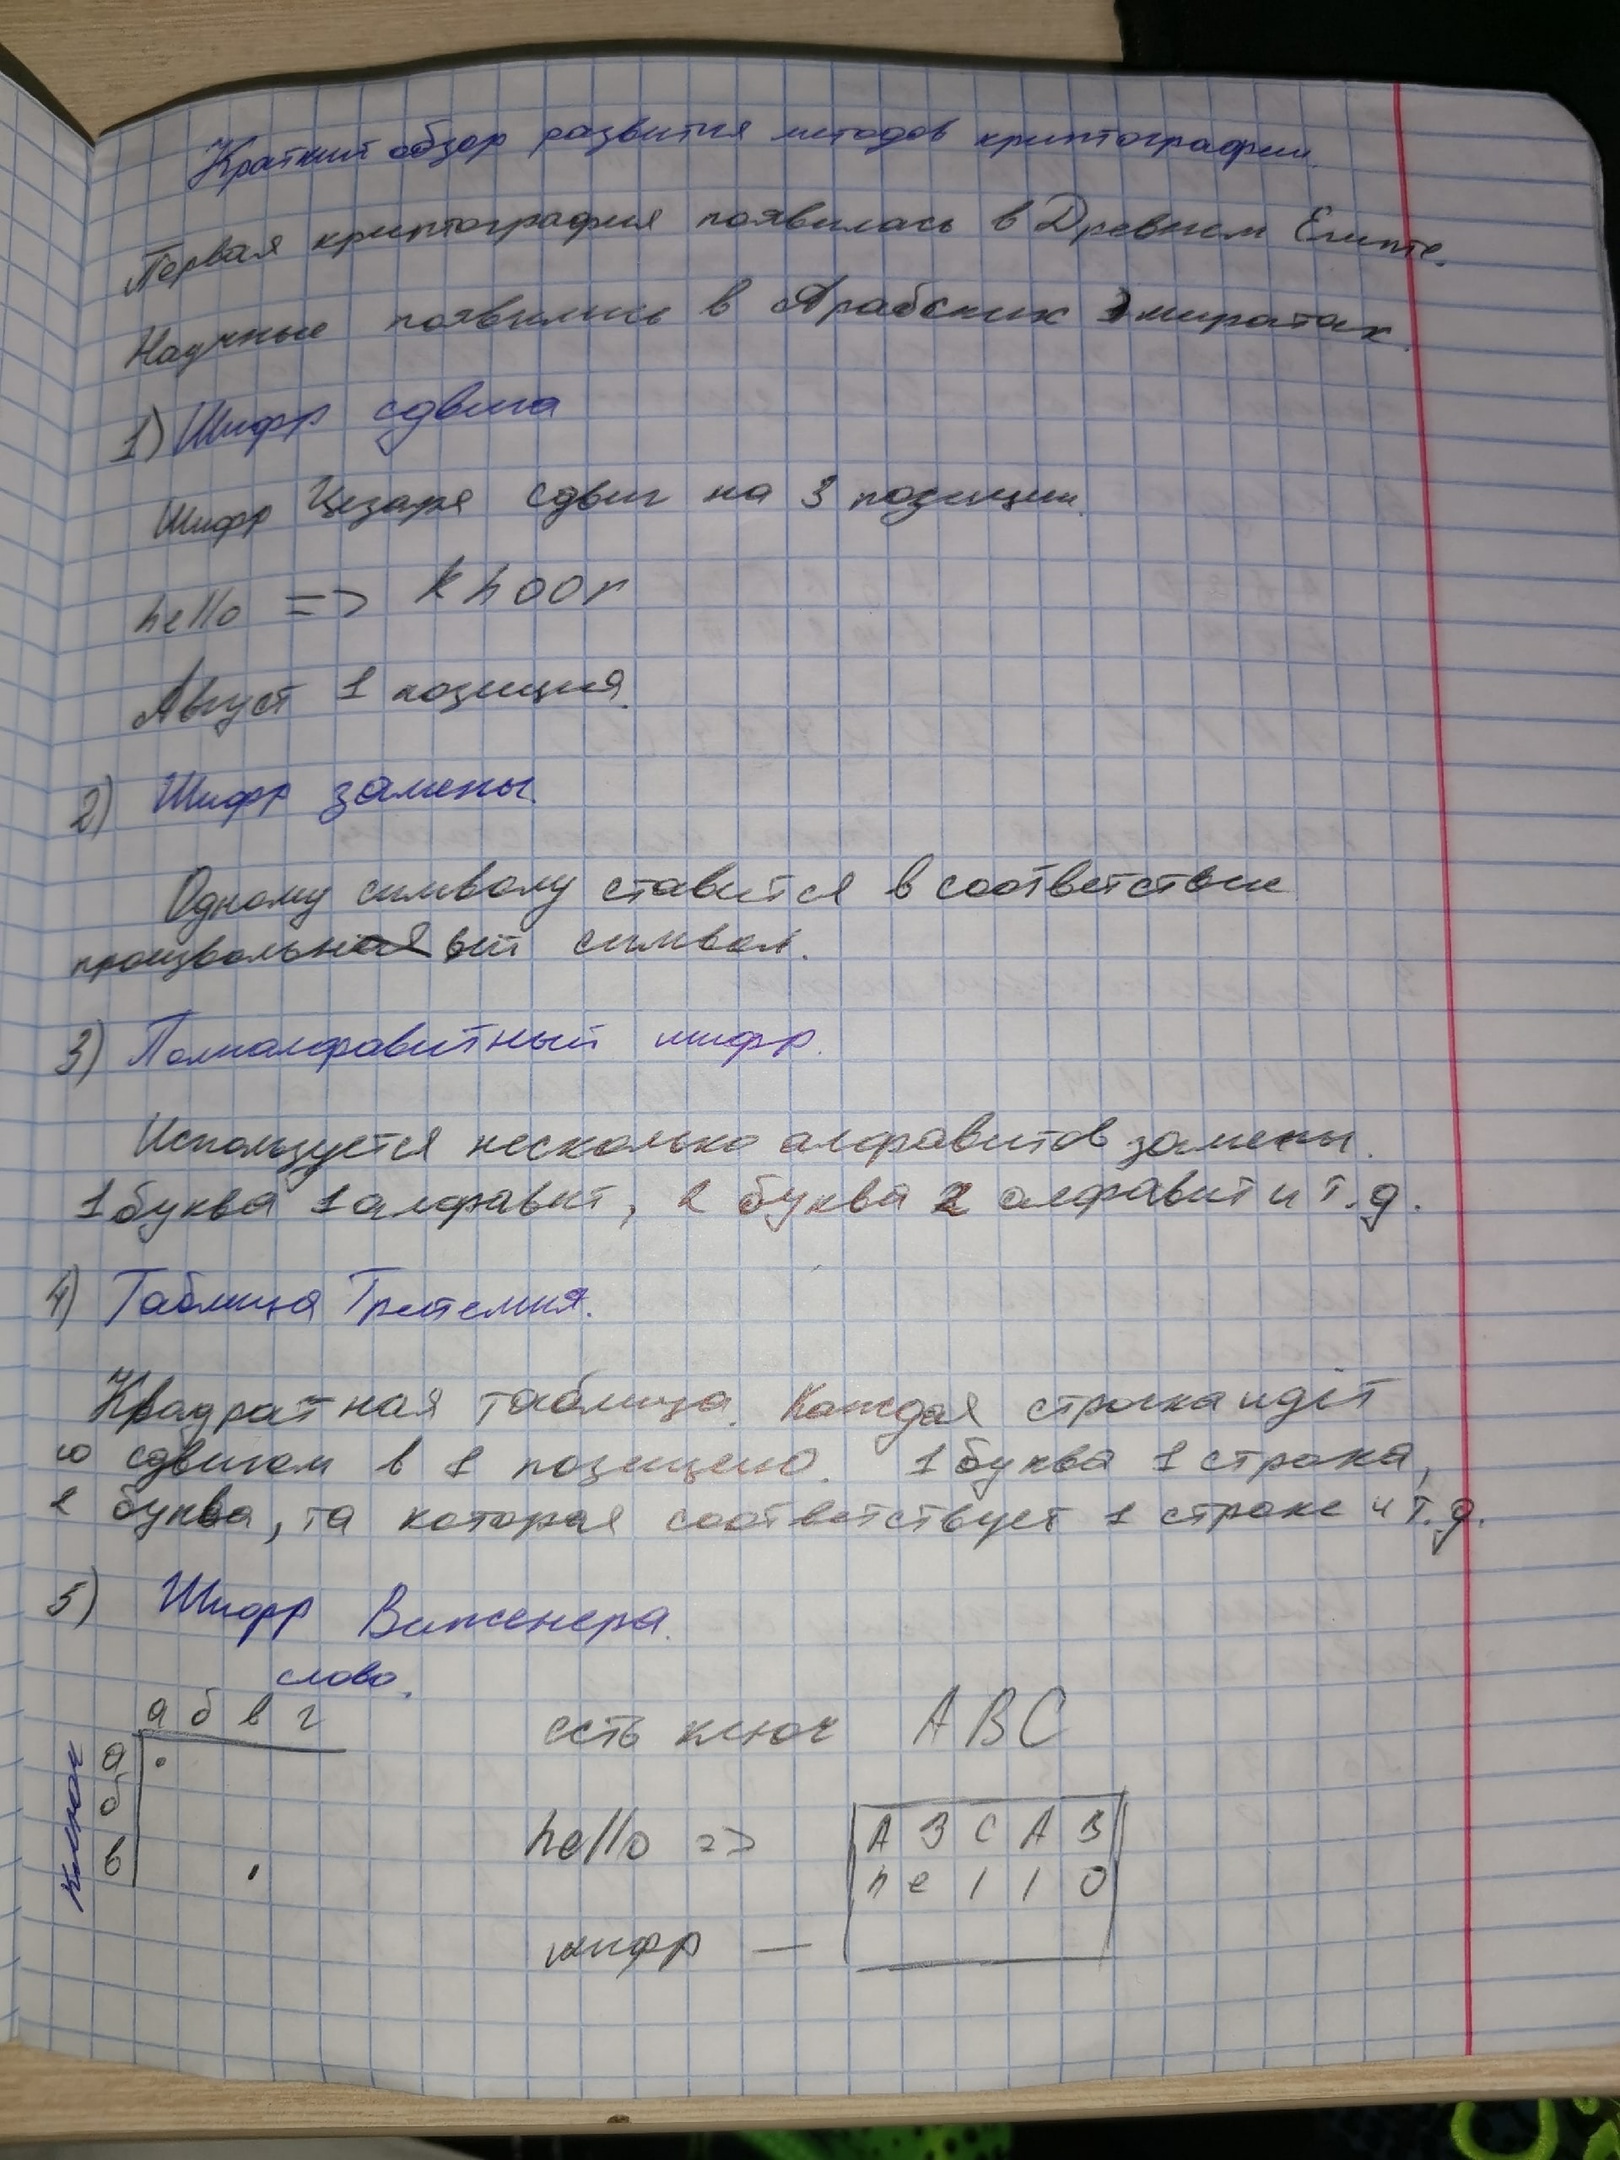 Краткий обзор развития методов криптографии.
Первая криптография появилась в Древнем Египте.
Научные появились в Арабских Эмиратах.
1) Шифр сдвига
Шифр Цезаря сдвиг на 3 позиции.
hello => khoor
Август 1 позиция.
2) Шифр замены.
Одному символу ставится в соответствие
произвольный символ.
3) Полиалфавитный шифр.
Используется несколько алфавитов замены.
1 буква 1 алфавит, 2 буква 2 алфавит и т.д.
4) Таблица Тритемия.
Квадратная таблица. Каждая строка идёт
со сдвигом в 1 позицию. 1 буква 1 строка,
2 буква, та которая соответствует 1 строке и т.д.
5) Шифр Виженера.
слово.
а б в г
ключ
а
б
в
есть ключ ABC
hello => A B C A B
h e l l o
шифр —